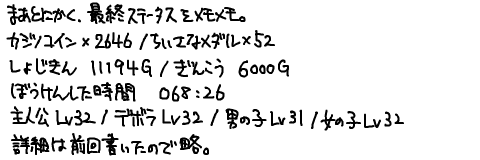 まあとにかく、最終ステータスをメモメモ。
カジノコイン×2646 / ちいさなメダル×52
しょじきん 11194G / ぎんこう 6000G
ぼうけんした時間 068:26
主人公Lv32 / デボラLv32 / 男の子Lv31 / 女の子Lv32
詳細は前回書いたので略。